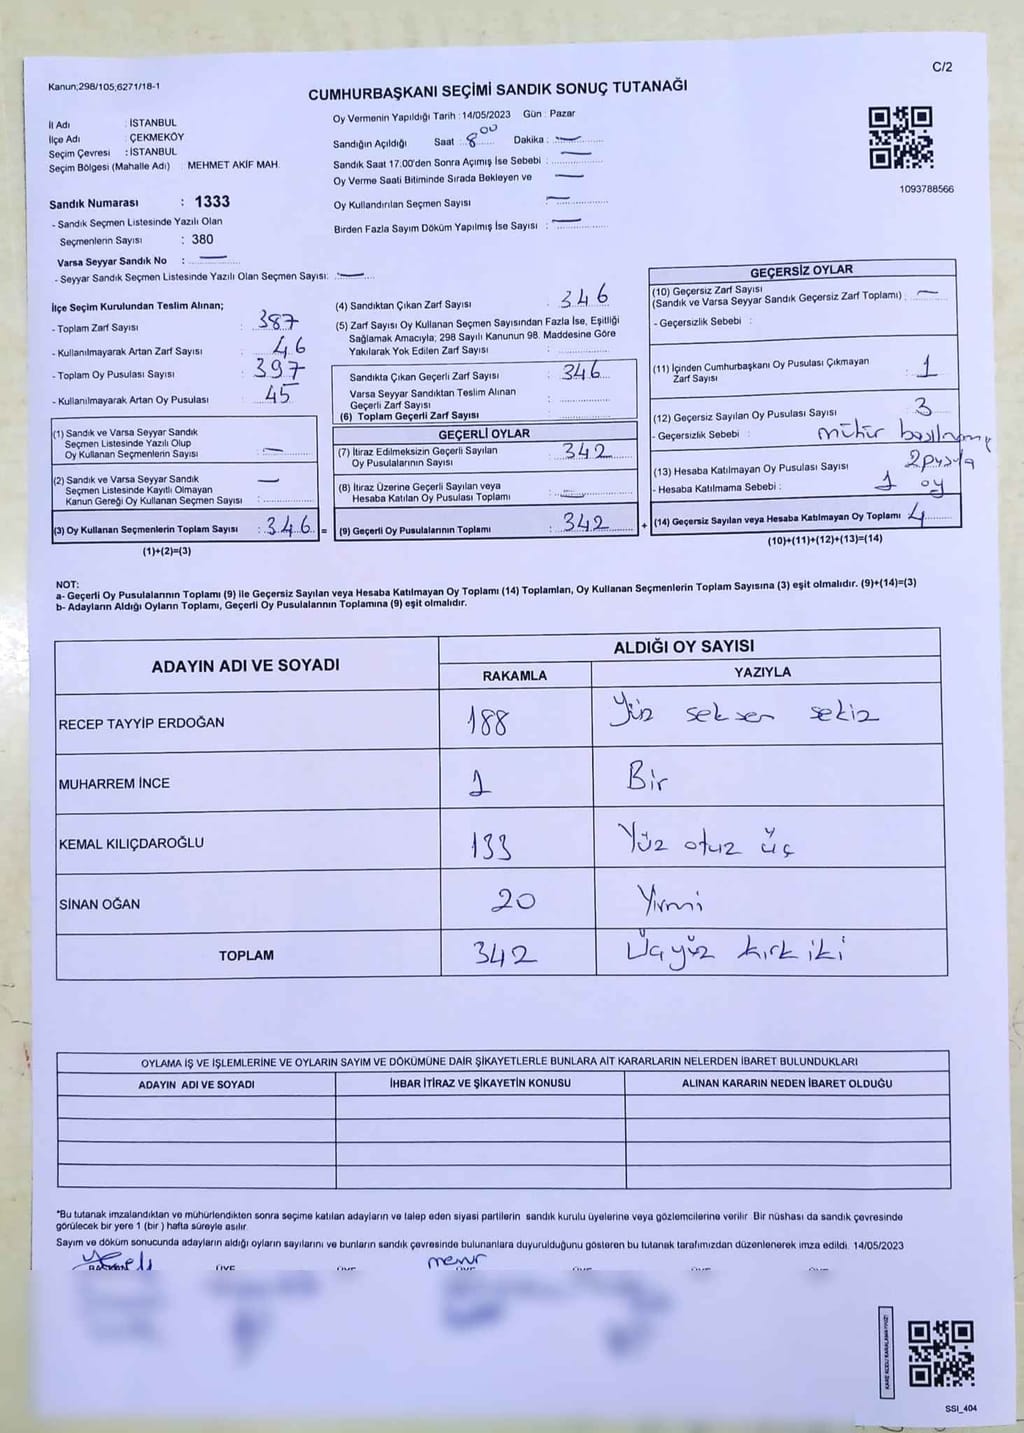 C/2
Kanun;298/105;6271/18-1
CUMHURBAŞKANI SEÇİMİ SANDIK SONUÇ TUTANAĞI
İl Adı : İSTANBUL
İlçe Adı : ÇEKMEKÖY
Seçim Çevresi : İSTANBUL
Seçim Bölgesi (Mahalle Adı) : MEHMET AKİF MAH.
Sandık Numarası : 1333
- Sandık Seçmen Listesinde Yazılı Olan
Seçmenlerin Sayısı : 380
Varsa Seyyar Sandık No : —
- Seyyar Sandık Seçmen Listesinde Yazılı Olan Seçmen Sayısı: —
Oy Vermenin Yapıldığı Tarih : 14/05/2023 Gün : Pazar
Sandığın Açıldığı Saat : 8 00 Dakika : —
Sandık Saat 17:00'den Sonra Açımış İse Sebebi : —
Oy Verme Saati Bitiminde Sırada Bekleyen ve —
Oy Kullandırılan Seçmen Sayısı —
Birden Fazla Sayım Döküm Yapılmış İse Sayısı : —
1093788566
İlçe Seçim Kurulundan Teslim Alınan;
- Toplam Zarf Sayısı : 387
- Kullanılmayarak Artan Zarf Sayısı : 46
- Toplam Oy Pusulası Sayısı : 397
- Kullanılmayarak Artan Oy Pusulası : 45
(1) Sandık ve Varsa Seyyar Sandık
Seçmen Listesinde Yazılı Olup
Oy Kullanan Seçmenlerin Sayısı : —
(2) Sandık ve Varsa Seyyar Sandık
Seçmen Listesinde Kayıtlı Olmayan
Kanun Gereği Oy Kullanan Seçmen Sayısı : —
(3) Oy Kullanan Seçmenlerin Toplam Sayısı : 346 =
(1)+(2)=(3)
(4) Sandıktan Çıkan Zarf Sayısı : 346
(5) Zarf Sayısı Oy Kullanan Seçmen Sayısından Fazla İse, Eşitliği
Sağlamak Amacıyla; 298 Sayılı Kanunun 98. Maddesine Göre
Yakılarak Yok Edilen Zarf Sayısı :
Sandıkta Çıkan Geçerli Zarf Sayısı : 346
Varsa Seyyar Sandıktan Teslim Alınan
Geçerli Zarf Sayısı :
(6) Toplam Geçerli Zarf Sayısı :
GEÇERLİ OYLAR
(7) İtiraz Edilmeksizin Geçerli Sayılan
Oy Pusulalarının Sayısı : 342
(8) İtiraz Üzerine Geçerli Sayılan veya
Hesaba Katılan Oy Pusulası Toplamı : —
(9) Geçerli Oy Pusulalarının Toplamı : 342 +
GEÇERSİZ OYLAR
(10) Geçersiz Zarf Sayısı
(Sandık ve Varsa Seyyar Sandık Geçersiz Zarf Toplamı) : —
- Geçersizlik Sebebi :
(11) İçinden Cumhurbaşkanı Oy Pusulası Çıkmayan
Zarf Sayısı : 1
(12) Geçersiz Sayılan Oy Pusulası Sayısı : 3
- Geçersizlik Sebebi : mühür
(13) Hesaba Katılmayan Oy Pusulası Sayısı 2
- Hesaba Katılmama Sebebi : 1 oy
(14) Geçersiz Sayılan veya Hesaba Katılmayan Oy Toplamı : 4
(10)+(11)+(12)+(13)=(14)
NOT:
a- Geçerli Oy Pusulalarının Toplamı (9) ile Geçersiz Sayılan veya Hesaba Katılmayan Oy Toplamı (14) Toplamları, Oy Kullanan Seçmenlerin Toplam Sayısına (3) eşit olmalıdır. (9)+(14)=(3)
b- Adayların Aldığı Oyların Toplamı, Geçerli Oy Pusulalarının Toplamına (9) eşit olmalıdır.
ADAYIN ADI VE SOYADI ALDIĞI OY SAYISI
RAKAMLA YAZIYLA
RECEP TAYYİP ERDOĞAN 188 Yüz seksen sekiz
MUHARREM İNCE 1 Bir
KEMAL KILIÇDAROĞLU 133 Yüz otuz üç
SİNAN OĞAN 20 Yirmi
TOPLAM 342 Üçyüz kırk iki
OYLAMA İŞ VE İŞLEMLERİNE VE OYLARIN SAYIM VE DÖKÜMÜNE DAİR ŞİKAYETLERLE BUNLARA AİT KARARLARIN NELERDEN İBARET BULUNDUKLARI
ADAYIN ADI VE SOYADI İHBAR İTİRAZ VE ŞİKAYETİN KONUSU ALINAN KARARIN NEDEN İBARET OLDUĞU
*Bu tutanak imzalandıktan ve mühürlendikten sonra seçime katılan adayların ve talep eden siyasi partilerin sandık kurulu üyelerine veya gözlemcilerine verilir. Bir nüshası da sandık çevresinde
görülecek bir yere 1 (bir) hafta süreyle asılır.
Sayım ve döküm sonucunda adayların aldığı oyların sayılarını ve bunların sandık çevresinde bulunanlara duyurulduğunu gösteren bu tutanak tarafımızdan düzenlenerek imza edildi. 14/05/2023
memur
SSI_404